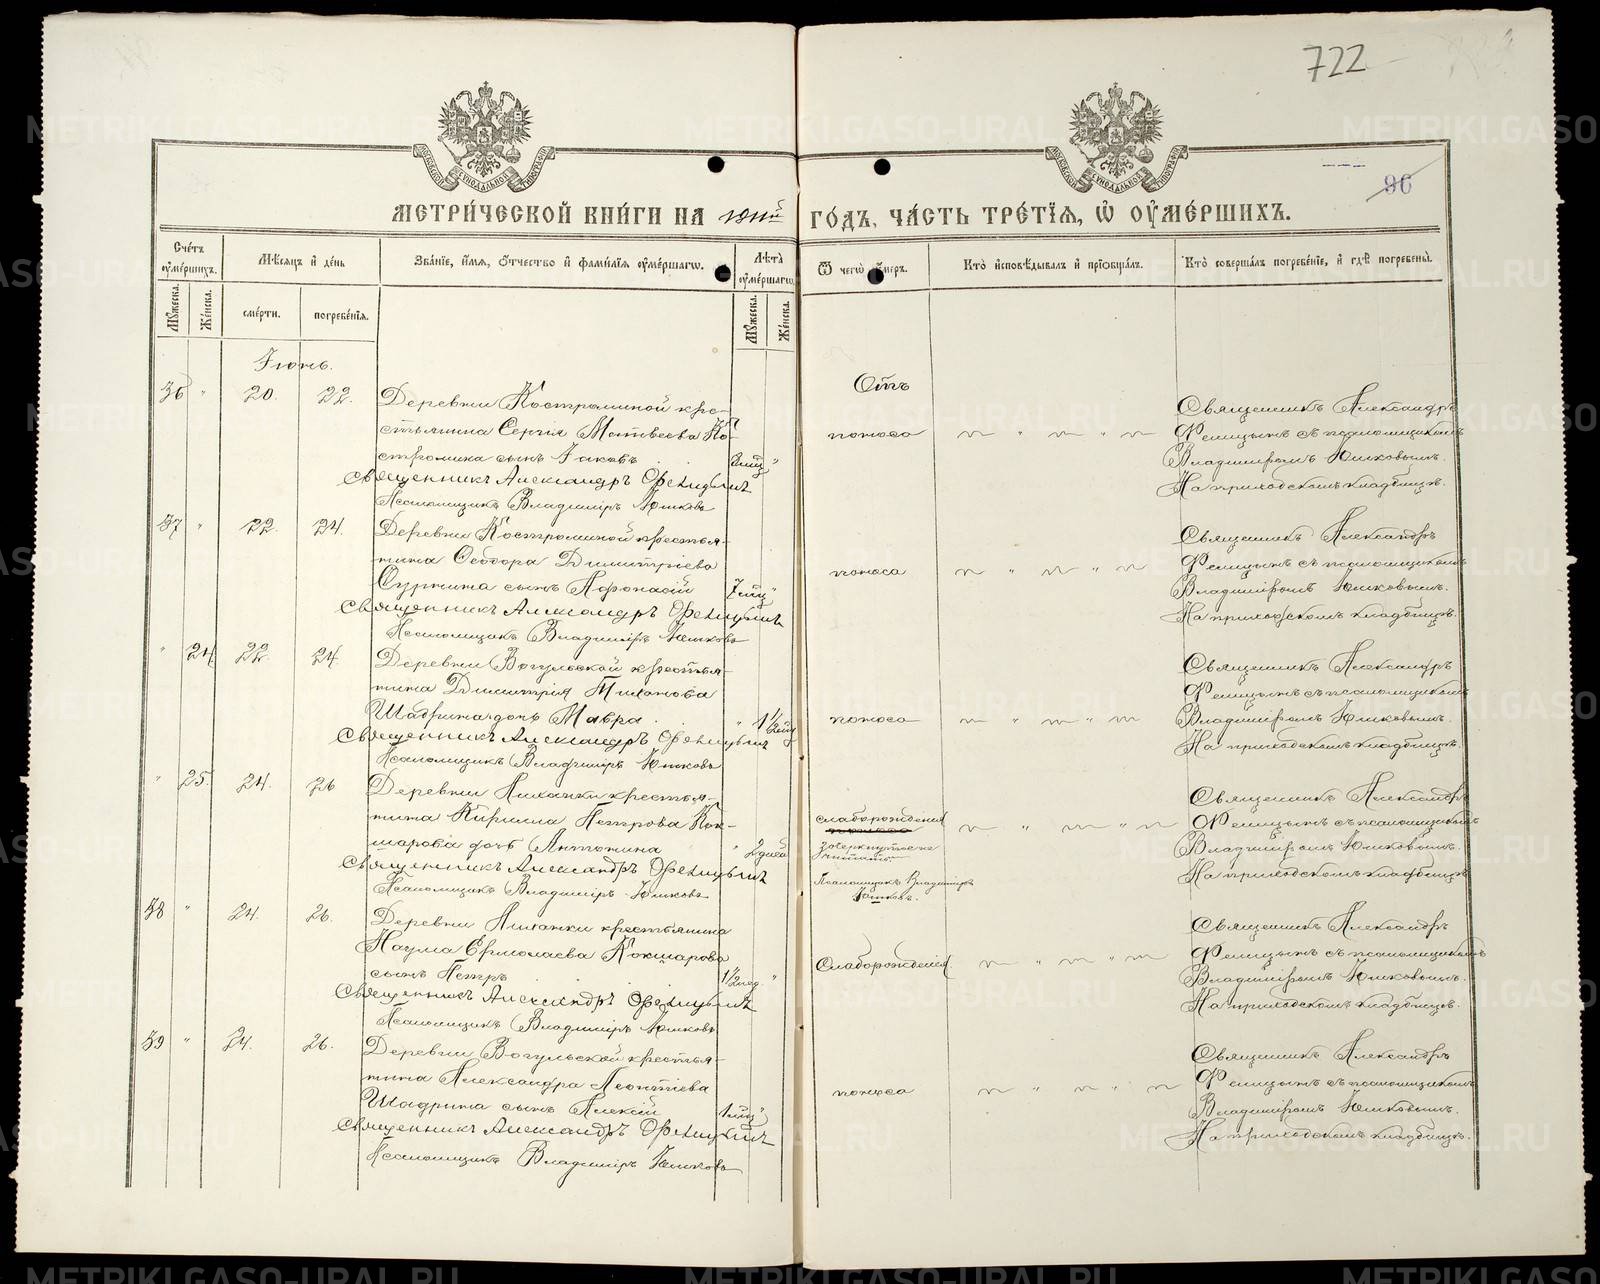 722
96
МЕТРИЧЕСКОЙ КНИГИ НА
ГОДЪ, ЧАСТЬ ТРЕТІЯ, Ѡ ОУМЕРШИХЪ.
Счетъ оумершихъ.
Мѣсяцъ и день
Званіе, имя, отчество и фамилія оумершагѡ.
Лѣта оумершагѡ.
Ѿ чегѡ оумеръ.
Кто исповѣдывалъ и пріобщалъ.
Кто совершалъ погребеніе, и гдѣ погребены.
Мужеска.
Женска.
смерти.
погребенія.
Мужеска.
Женска.
Іюнь.
36 " 20. 22. Деревни Костроминой кре-
стьянина Сергія Матвеева Ко-
стромина сынъ Іаковъ 8 мц "
Священникъ Александръ Феницынъ
Псаломщикъ Владиміръ Юшковъ
Отъ
поноса
Священникъ Александръ
Феницынъ съ псаломщикомъ
Владиміромъ Юшковымъ.
На приходскомъ кладбищѣ.
37 " 22. 24. Деревни Костроминой крестья-
нина Ѳеодора Димитріева
сынъ Афонасій 7 мц "
Священникъ Александръ Феницынъ
Псаломщикъ Владиміръ Юшковъ
поноса
Священникъ Александръ
Феницынъ съ псаломщикомъ
Владиміромъ Юшковымъ.
На приходскомъ кладбищѣ.
" 24 22. 24. Деревни Вогульской крестья-
нина Димитрія Тиханова
Шадрина дочь Мавра. " 1 1/2 мц
Священникъ Александръ Феницынъ
Псаломщикъ Владиміръ Юшковъ
поноса
Священникъ Александръ
Феницынъ съ псаломщикомъ
Владиміромъ Юшковымъ.
На приходскомъ кладбищѣ.
" 25. 24. 26 Деревни крестья-
нина Кирилла Петрова Кок-
шарова дочь Антонина " 2 дней
Священникъ Александръ Феницынъ
Псаломщикъ Владиміръ Юшковъ
слаборожденія
зачеркнутое не
читать
Псаломщикъ Владиміръ
Юшковъ.
Священникъ Александръ
Феницынъ съ псаломщикомъ
Владиміромъ Юшковымъ.
На приходскомъ кладбищѣ
38 " 24. 26. Деревни крестьянина
Наума Ермолаева Кокшарова
сынъ Петръ 1 1/2 нед. "
Священникъ Александръ Феницынъ
Псаломщикъ Владиміръ Юшковъ
Слаборожденія
Священникъ Александръ
Феницынъ съ псаломщикомъ
Владиміромъ Юшковымъ.
На приходскомъ кладбищѣ.
39 " 24. 26. Деревни Вогульской крестья-
нина Александра Леонтіева
Шадрина сынъ Алексій 1 мц "
Священникъ Александръ Феницынъ
Псаломщикъ Владиміръ Юшковъ
поноса
Священникъ Александръ
Феницынъ съ псаломщикомъ
Владиміромъ Юшковымъ.
На приходскомъ кладбищѣ.
METRIKI.GASO-URAL.RU